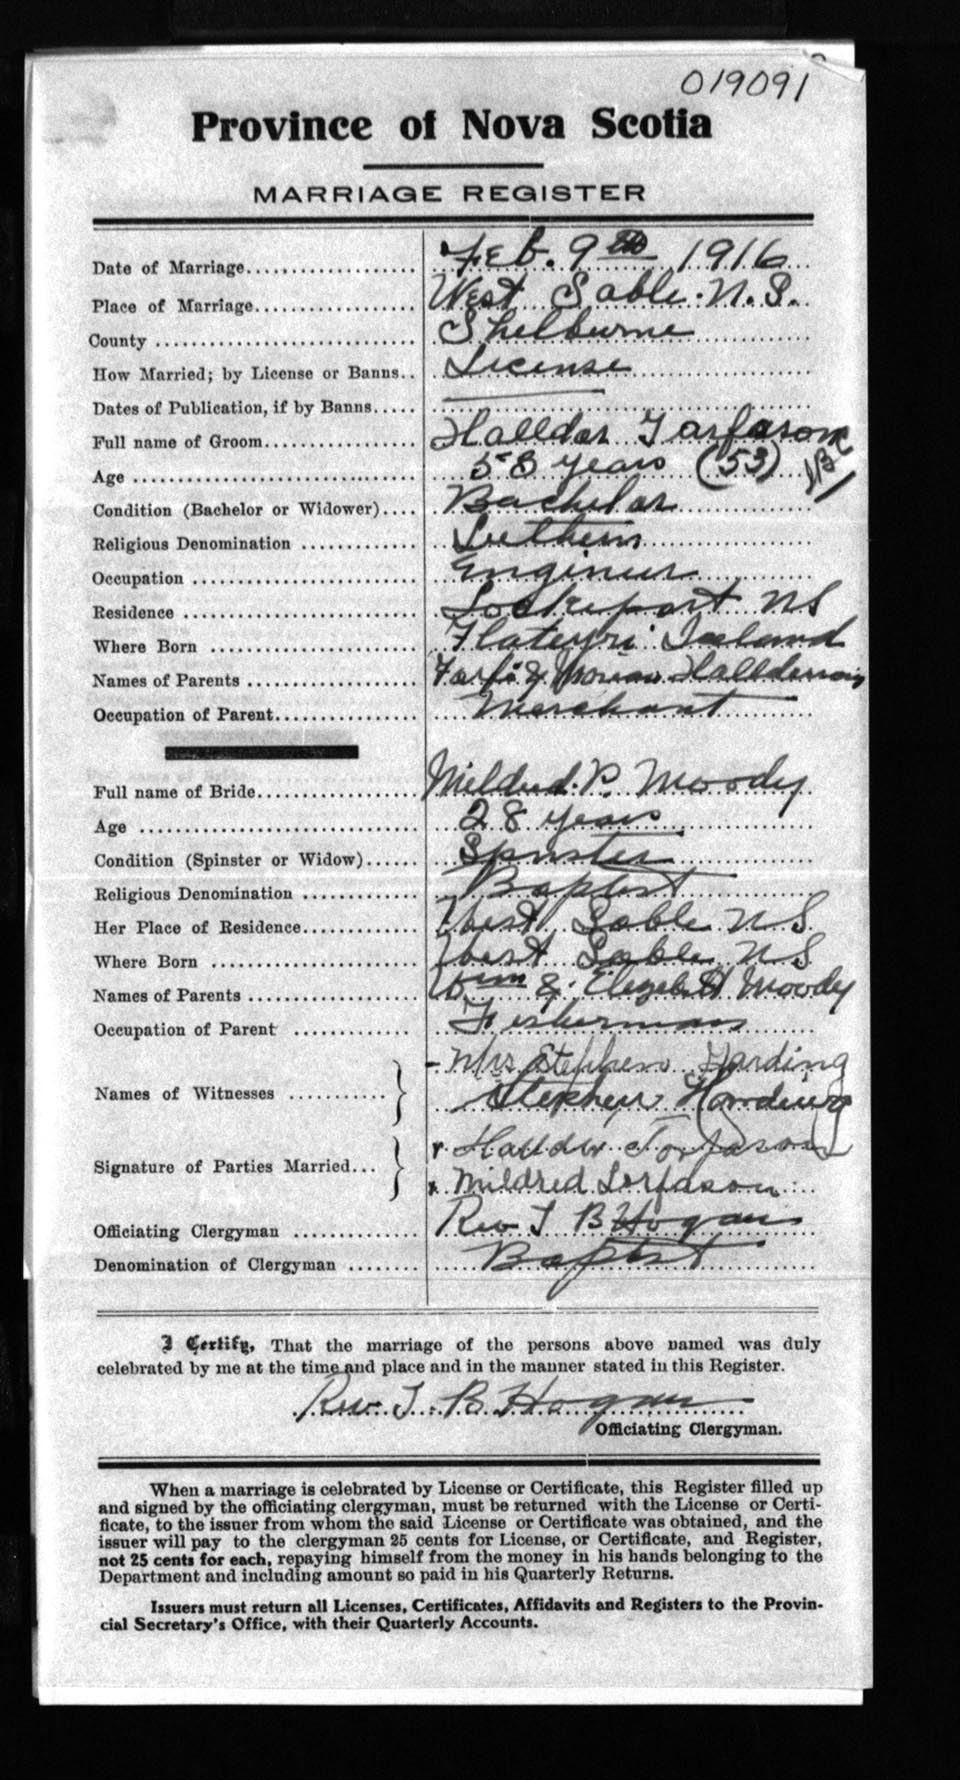 019091
Province of Nova Scotia
MARRIAGE REGISTER
Date of Marriage.................. Feb. 9th 1916
Place of Marriage................. West Sable. N.S.
County ............................ Shelburne
How Married; by License or Banns.. License
Dates of Publication, if by Banns..... ———
Full name of Groom................. Halldor Torfason
Age ............................... 58 years (53)
Condition (Bachelor or Widower).... Bachelor
Religious Denomination ............ Luthern
Occupation ........................ Engineer
Residence ......................... Lockeport NS
Where Born ........................ Flateyri Iceland
Names of Parents .................. Torfi &
Occupation of Parent............... Merchant
Full name of Bride................. Mildred. P. Moody
Age ............................... 28 years
Condition (Spinster or Widow)...... Spinster
Religious Denomination ............ Baptist
Her Place of Residence............. West Sable NS
Where Born ........................ West Sable NS
Names of Parents .................. Wm & Elizabeth Moody
Occupation of Parent ............ Fisherman
- Mrs Stephen Harding
Names of Witnesses ........... Stephen Harding
x Halldor Torfason
Signature of Parties Married... x Mildred Torfason
Officiating Clergyman ............. Rev T B Hogan
Denomination of Clergyman ........ Baptist
I Certify, That the marriage of the persons above named was duly
celebrated by me at the time and place and in the manner stated in this Register.
Rev. T. B. Hogan
Officiating Clergyman.
When a marriage is celebrated by License or Certificate, this Register filled up
and signed by the officiating clergyman, must be returned with the License or Certi-
ficate, to the issuer from whom the said License or Certificate was obtained, and the
issuer will pay to the clergyman 25 cents for License, or Certificate, and Register,
not 25 cents for each, repaying himself from the money in his hands belonging to the
Department and including amount so paid in his Quarterly Returns.
Issuers must return all Licenses, Certificates, Affidavits and Registers to the Provin-
cial Secretary's Office, with their Quarterly Accounts.